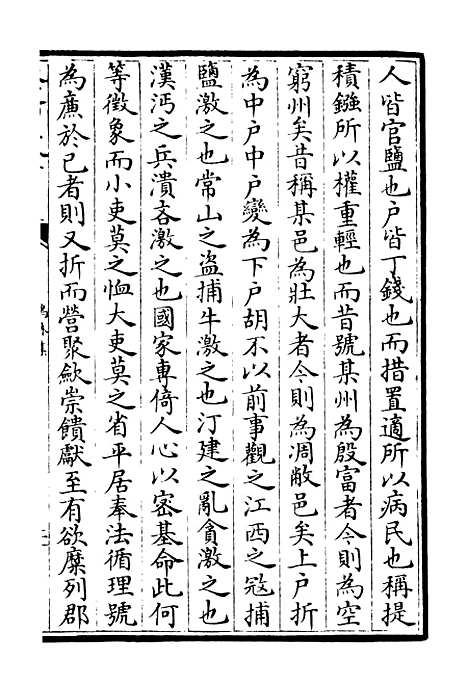 人皆官鹽也戸皆丁錢也而措置適所以病民也稱提
積鏹所以權重輕也而昔號某州為殷富者今則為空
窮州矣昔稱某邑為壯大者今則為凋敝邑矣上戸折
為中戸中戸變為下戸胡不以前事觀之江西之冦捕
鹽激之也常山之盗捕牛激之也汀建之亂貪激之也
漢沔之兵潰吝激之也國家專倚人心以宻基命此何
等徴象而小吏莫之恤大吏莫之省平居奉法循理號
為亷於已者則又折而營聚歛崇饋獻至有欲糜列郡